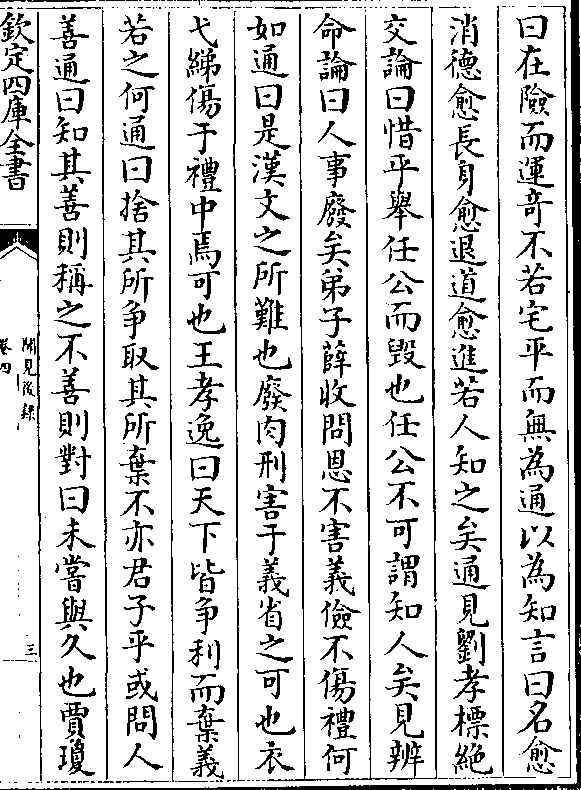 曰在險而運竒不若宅平而無為通以為知言曰名愈
消德愈長身愈退道愈進若人知之矣通見劉孝標絶
交論曰惜乎舉任公而毁也任公不可謂知人矣見辨
命論曰人事廢矣弟子薛收問恩不害義儉不傷禮何
如通曰是漢文之所難也廢肉刑害于義省之可也衣
弋綈傷于禮中焉可也王孝逸曰天下皆争利而棄義
若之何通曰捨其所争取其所棄不亦君子乎或問人
善通曰知其善則稱之不善則對曰未嘗與久也賈瓊
欽定四庫全書
聞見後録
卷四
三